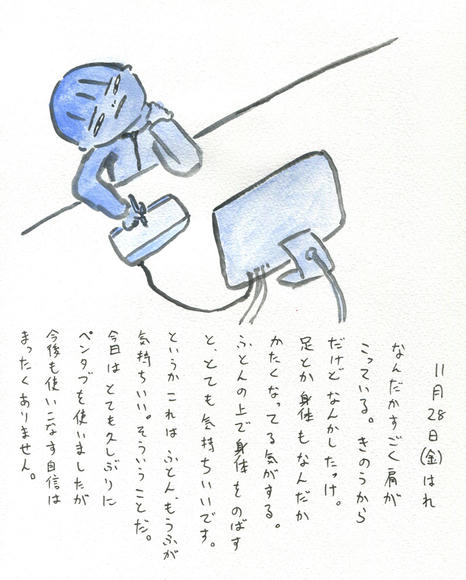 11月28日(金)はれ
なんだかすごく肩が
こっている。きのうから
だけどなんかしたっけ。
足とか身体もなんだか
かたくなってる気がする。
ふとんの上で身体をのばす
と、とても気持ちいいです。
というかこれはふとん、もうふが
気持ちいい。そういうことだ。
今日はとても久しぶりに
ペンタブを使いましたが
今後も使いこなす自信は
まったくありません。